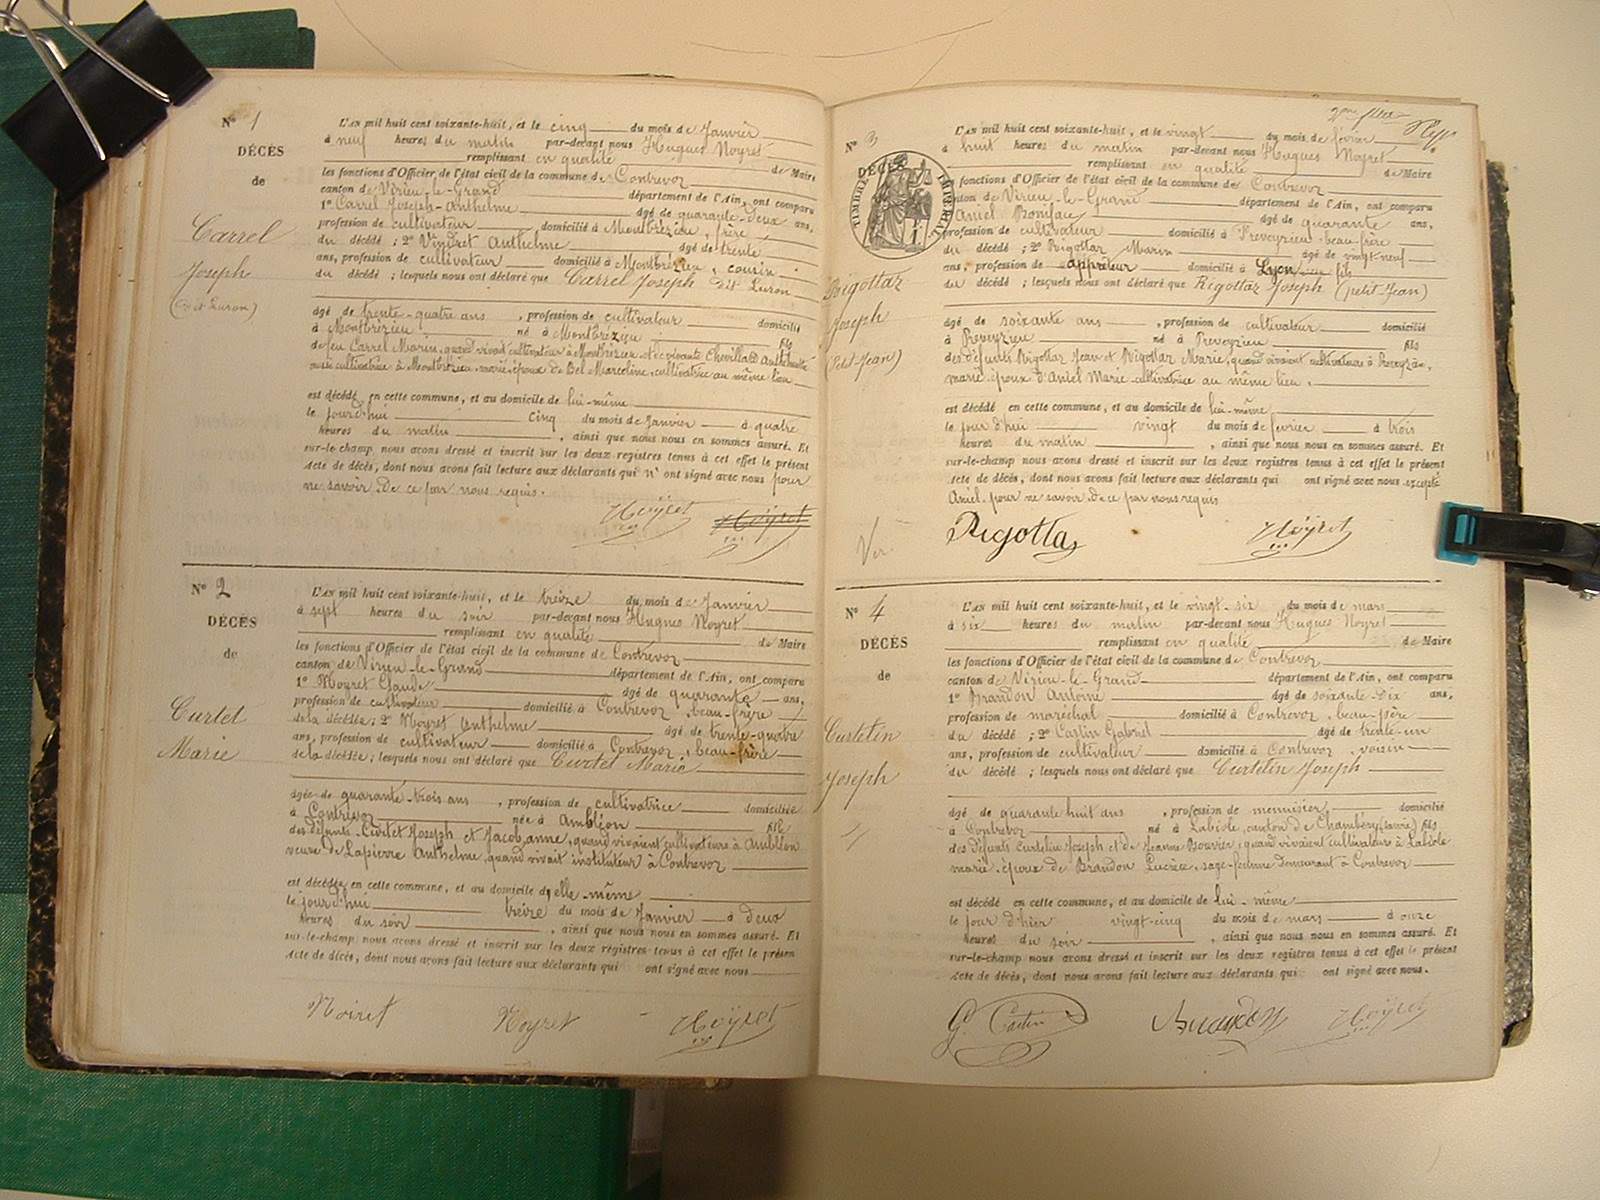 N° 1
DÉCÈS
de
Carrel
Joseph
(dit Luron)
L'AN mil huit cent soixante-huit, et le cinq du mois de Janvier
à neuf heures du matin par-devant nous Hugues Noyret
remplissant en qualité de Maire
les fonctions d'Officier de l'état civil de la commune de Contrevoz
canton de Virieu-le-Grand département de l'Ain, ont comparu
1° Carrel Joseph-Anthelme âgé de quarante-deux ans,
profession de cultivateur domicilié à Montbrézieu, frère
du décédé ; 2° Vindret Anthelme âgé de trente
ans, profession de cultivateur domicilié à Montbrézieu, cousin
du décédé ; lesquels nous ont déclaré que Carrel Joseph dit Luron
âgé de trente-quatre ans, profession de cultivateur domicilié
à Montbrézieu né à Montbrézieu fils
de feu Carrel Marin, quand vivait cultivateur à Montbrézieu et de vivante Chevillard Anthelmette
aussi cultivatrice à Montbrézieu, marié, époux de Bel Marceline, cultivatrice au même lieu
est décédé en cette commune, et au domicile de lui-même
le jourd'hui cinq du mois de Janvier à quatre
heures du matin, ainsi que nous nous en sommes assuré. Et
sur-le-champ nous avons dressé et inscrit sur les deux registres tenus à cet effet le présent
acte de décès, dont nous avons fait lecture aux déclarants qui n'ont signé avec nous pour
ne savoir De ce par nous requis.
Noÿret Noÿret
N° 2
DÉCÈS
de
Curtet
Marie
L'AN mil huit cent soixante-huit, et le treize du mois de Janvier
à sept heures du soir par-devant nous Hugues Noyret
remplissant en qualité de Maire
les fonctions d'Officier de l'état civil de la commune de Contrevoz
canton de Virieu-le-Grand département de l'Ain, ont comparu
1° Noyret Claude âgé de quarante ans,
profession de cultivateur domicilié à Contrevoz, beau-frère
de la décédée ; 2° Noyret Anthelme âgé de trente-quatre
ans, profession de cultivateur domicilié à Contrevoz, beau-frère
de la décédée ; lesquels nous ont déclaré que Curtet Marie
âgée de quarante-trois ans, profession de cultivatrice domiciliée
à Contrevoz née à Ambléon fille
des défunts Curtet Joseph et Jacob anne, quand vivaient cultivateurs à Ambléon
veuve de Lapierre Anthelme, quand vivait instituteur à Contrevoz
est décédée en cette commune, et au domicile d'elle-même
le jourd'hui treize du mois de Janvier à deux
heures du soir, ainsi que nous nous en sommes assuré. Et
sur-le-champ nous avons dressé et inscrit sur les deux registres tenus à cet effet le présent
acte de décès, dont nous avons fait lecture aux déclarants qui ont signé avec nous
Noiret Noyret Noÿret
2me
N° 3
DÉCÈS
TIMBRE IMPÉRIAL
Rigottaz
Joseph
(Petit-Jean)
L'AN mil huit cent soixante-huit, et le vingt du mois de février
à huit heures du matin par-devant nous Hugues Noyret
remplissant en qualité de Maire
les fonctions d'Officier de l'état civil de la commune de Contrevoz
canton de Virieu-le-Grand département de l'Ain, ont comparu
Aniel Boniface âgé de quarante ans,
profession de cultivateur domicilié à Preveyzieu, beau-frère
du décédé ; 2° Rigottaz Marin âgé de vingt-neuf
ans, profession de apprêteur domicilié à Lyon fils
du décédé ; lesquels nous ont déclaré que Rigottaz Joseph (petit-Jean)
âgé de soixante ans, profession de cultivateur domicilié
à Preveyzieu né à Preveyzieu fils
des défunts Rigottaz Jean et Rigottaz Marie, quand vivaient cultivateurs à Preveyzieu,
marié, époux d'Aniel Marie cultivatrice au même lieu.
est décédé en cette commune, et au domicile de lui-même
le jour d'hui vingt du mois de février à trois
heures du matin, ainsi que nous nous en sommes assuré. Et
sur-le-champ nous avons dressé et inscrit sur les deux registres tenus à cet effet le présent
acte de décès, dont nous avons fait lecture aux déclarants qui ont signé avec nous excepté
Aniel pour ne savoir De ce par nous requis
Vu Rigottaz Noÿret
N° 4
DÉCÈS
de
Curtelin
Joseph
L'AN mil huit cent soixante-huit, et le vingt-six du mois de mars
à six heures du matin par-devant nous Hugues Noyret
remplissant en qualité de Maire
les fonctions d'Officier de l'état civil de la commune de Contrevoz
canton de Virieu-le-Grand département de l'Ain, ont comparu
1° Brandon Antoine âgé de soixante-dix ans,
profession de maréchal domicilié à Contrevoz, beau-père
du décédé ; 2° Castin Gabriel âgé de trente-un
ans, profession de cultivateur domicilié à Contrevoz, voisin
du décédé ; lesquels nous ont déclaré que Curtelin Joseph
âgé de quarante huit ans, profession de menuisier, domicilié
à Contrevoz né à Labiole, canton de Chambéry (Savoie) fils
des défunts Curtelin Joseph et de Jeanne Bouvier, quand vivaient cultivateurs à Labiole
marié, époux de Brandon Lucrèce, sage-femme demeurant à Contrevoz
est décédé en cette commune, et au domicile de lui-même
le jour d'hier vingt-cinq du mois de mars à onze
heures du soir, ainsi que nous nous en sommes assuré. Et
sur-le-champ nous avons dressé et inscrit sur les deux registres tenus à cet effet le présent
acte de décès, dont nous avons fait lecture aux déclarants qui ont signé avec nous.
G. Castin Brandon Noÿret